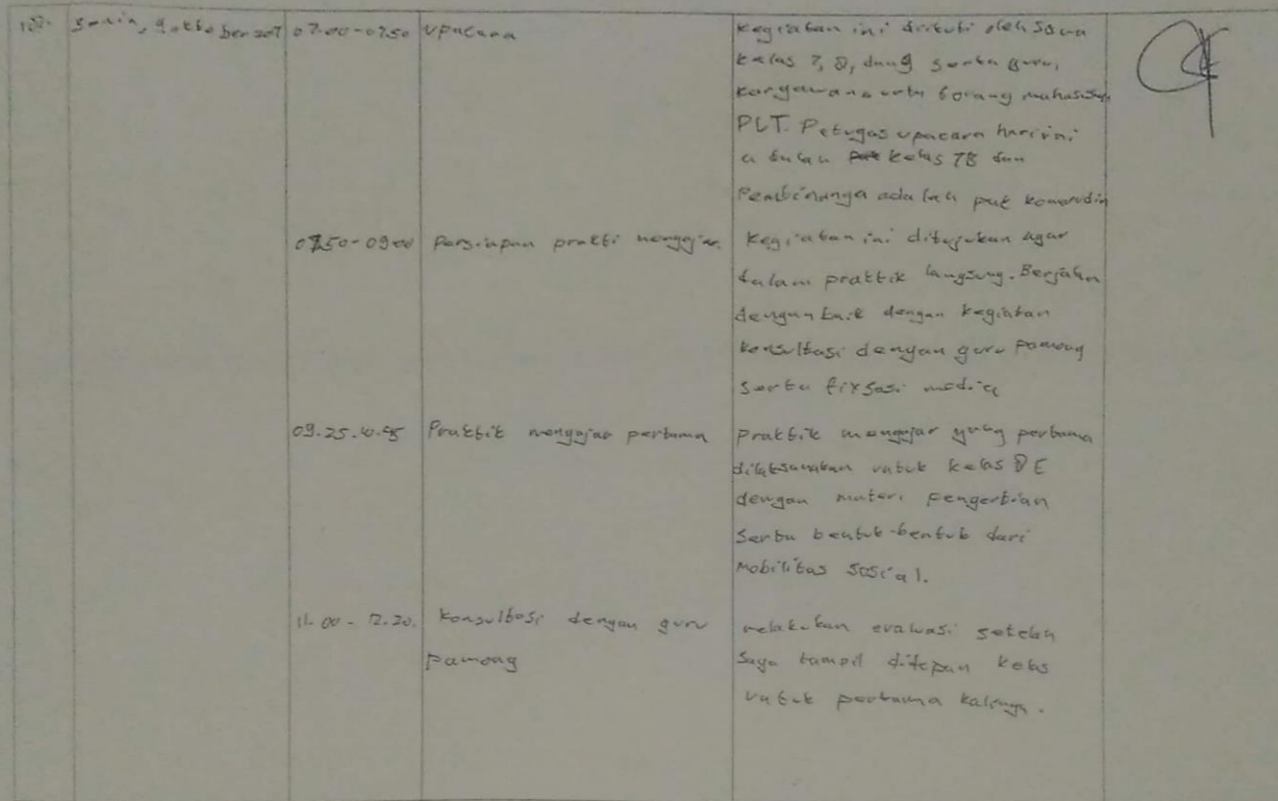 Senin, 9 oktober 2017 07.00-07.50 upacara
kegiatan ini diikuti oleh siswa
kelas 7, 8, dan 9 serta guru,
karyawan serta 6 orang mahasiswa
PLT. Petugas upacara hari ini
adalah kelas 7B dan
Pembinanya adalah pak komarudin
07.50-09.00 persiapan prakti mengajar.
kegiatan ini ditujukan agar
dalam praktik langsung. Berjalan
dengan baik dengan kegiatan
konsultasi dengan guru pamong
serta fixsasi media
09.25. Praktik mengajar pertama
praktik mengajar yang pertama
dilaksanakan untuk kelas 8E
dengan materi pengertian
serta bentuk-bentuk dari
mobilitas sosial.
11.00 - 12.20. konsultasi dengan guru
pamong
melakukan evaluasi setelah
saya tampil didepan kelas
untuk pertama kalinya.